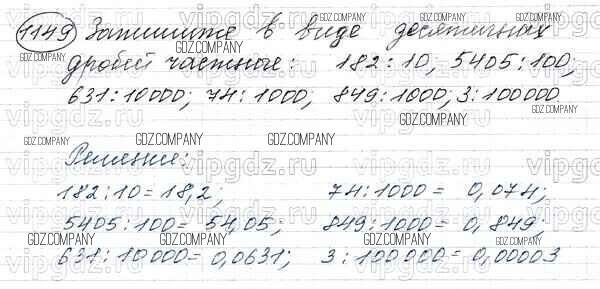 1149 Запишите в виде десятичных
дробей частные: 182:10, 5405:100;
631:10000; 74:1000; 849:1000; 3:100000.
Решение:
182:10=18,2; 74:1000= 0,074;
5405:100= 54,05; 849:1000= 0,849;
631:10000=0,0631; 3:100000=0,00003
GDZ.COMPANY
vipgdz.ru